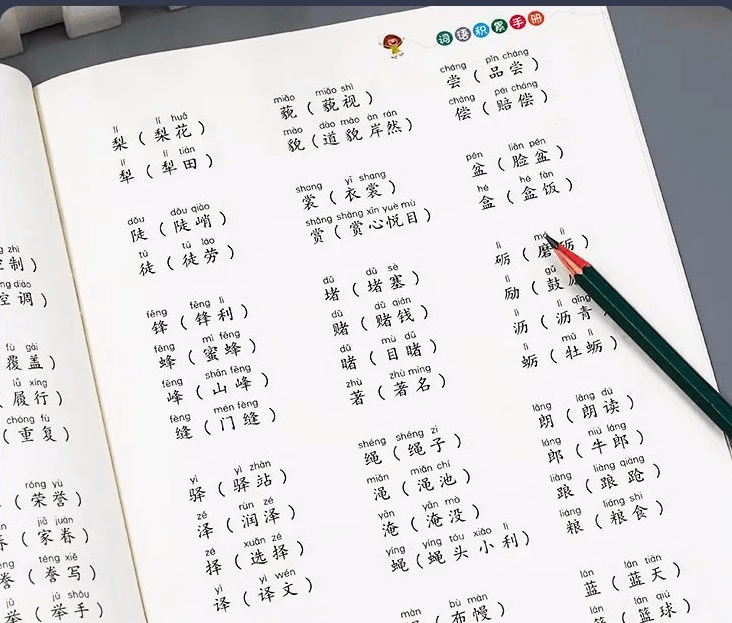 词语积累手册
制）
diào
空调）
fù gài
覆盖）
lǚ xíng
履行）
chóng fù
（重复）
róng yù
（荣誉）
jiā juàn
（家眷）
téng xiě
誊（誊写）
jǔ shǒu
举（举手）
lí lí huā
梨（梨花）
lí lí tián
犁（犁田）
dǒu dǒu qiào
陡（陡峭）
tú tú láo
徒（徒劳）
fēng fēng lì
锋（锋利）
fēng mì fēng
蜂（蜜蜂）
fēng shān fēng
峰（山峰）
fèng mén fèng
缝（门缝）
yì yì zhàn
驿（驿站）
zé rùn zé
泽（润泽）
zé xuǎn zé
择（选择）
yì yì wén
译（译文）
miǎo miǎo shì
藐（藐视）
mào dào mào àn rán
貌（道貌岸然）
shang yī shang
裳（衣裳）
shǎng shǎng xīn yuè mù
赏（赏心悦目）
dǔ dǔ sè
堵（堵塞）
dǔ dǔ qián
赌（赌钱）
dǔ mù dǔ
睹（目睹）
zhù zhù míng
著（著名）
shéng shéng zi
绳（绳子）
miǎn miǎn chí
渑（渑池）
yān yān mò
淹（淹没）
yíng yíng tóu xiǎo lì
蝇（蝇头小利）
màn bù màn
（布幔）
cháng pǐn cháng
尝（品尝）
cháng péi cháng
偿（赔偿）
pén liǎn pén
盆（脸盆）
hé hé fàn
盒（盒饭）
lì mó lì
砺（磨砺）
lì gǔ
励（鼓
lì lì qīng
沥（沥青
lì mǔ lì
蛎（牡蛎）
lǎng lǎng dú
朗（朗读）
láng niú láng
郎（牛郎）
liàng liàng qiàng
踉（踉跄）
liáng liáng shi
粮（粮食）
lán lán tiān
蓝（蓝天）
lán qiú
（篮球）